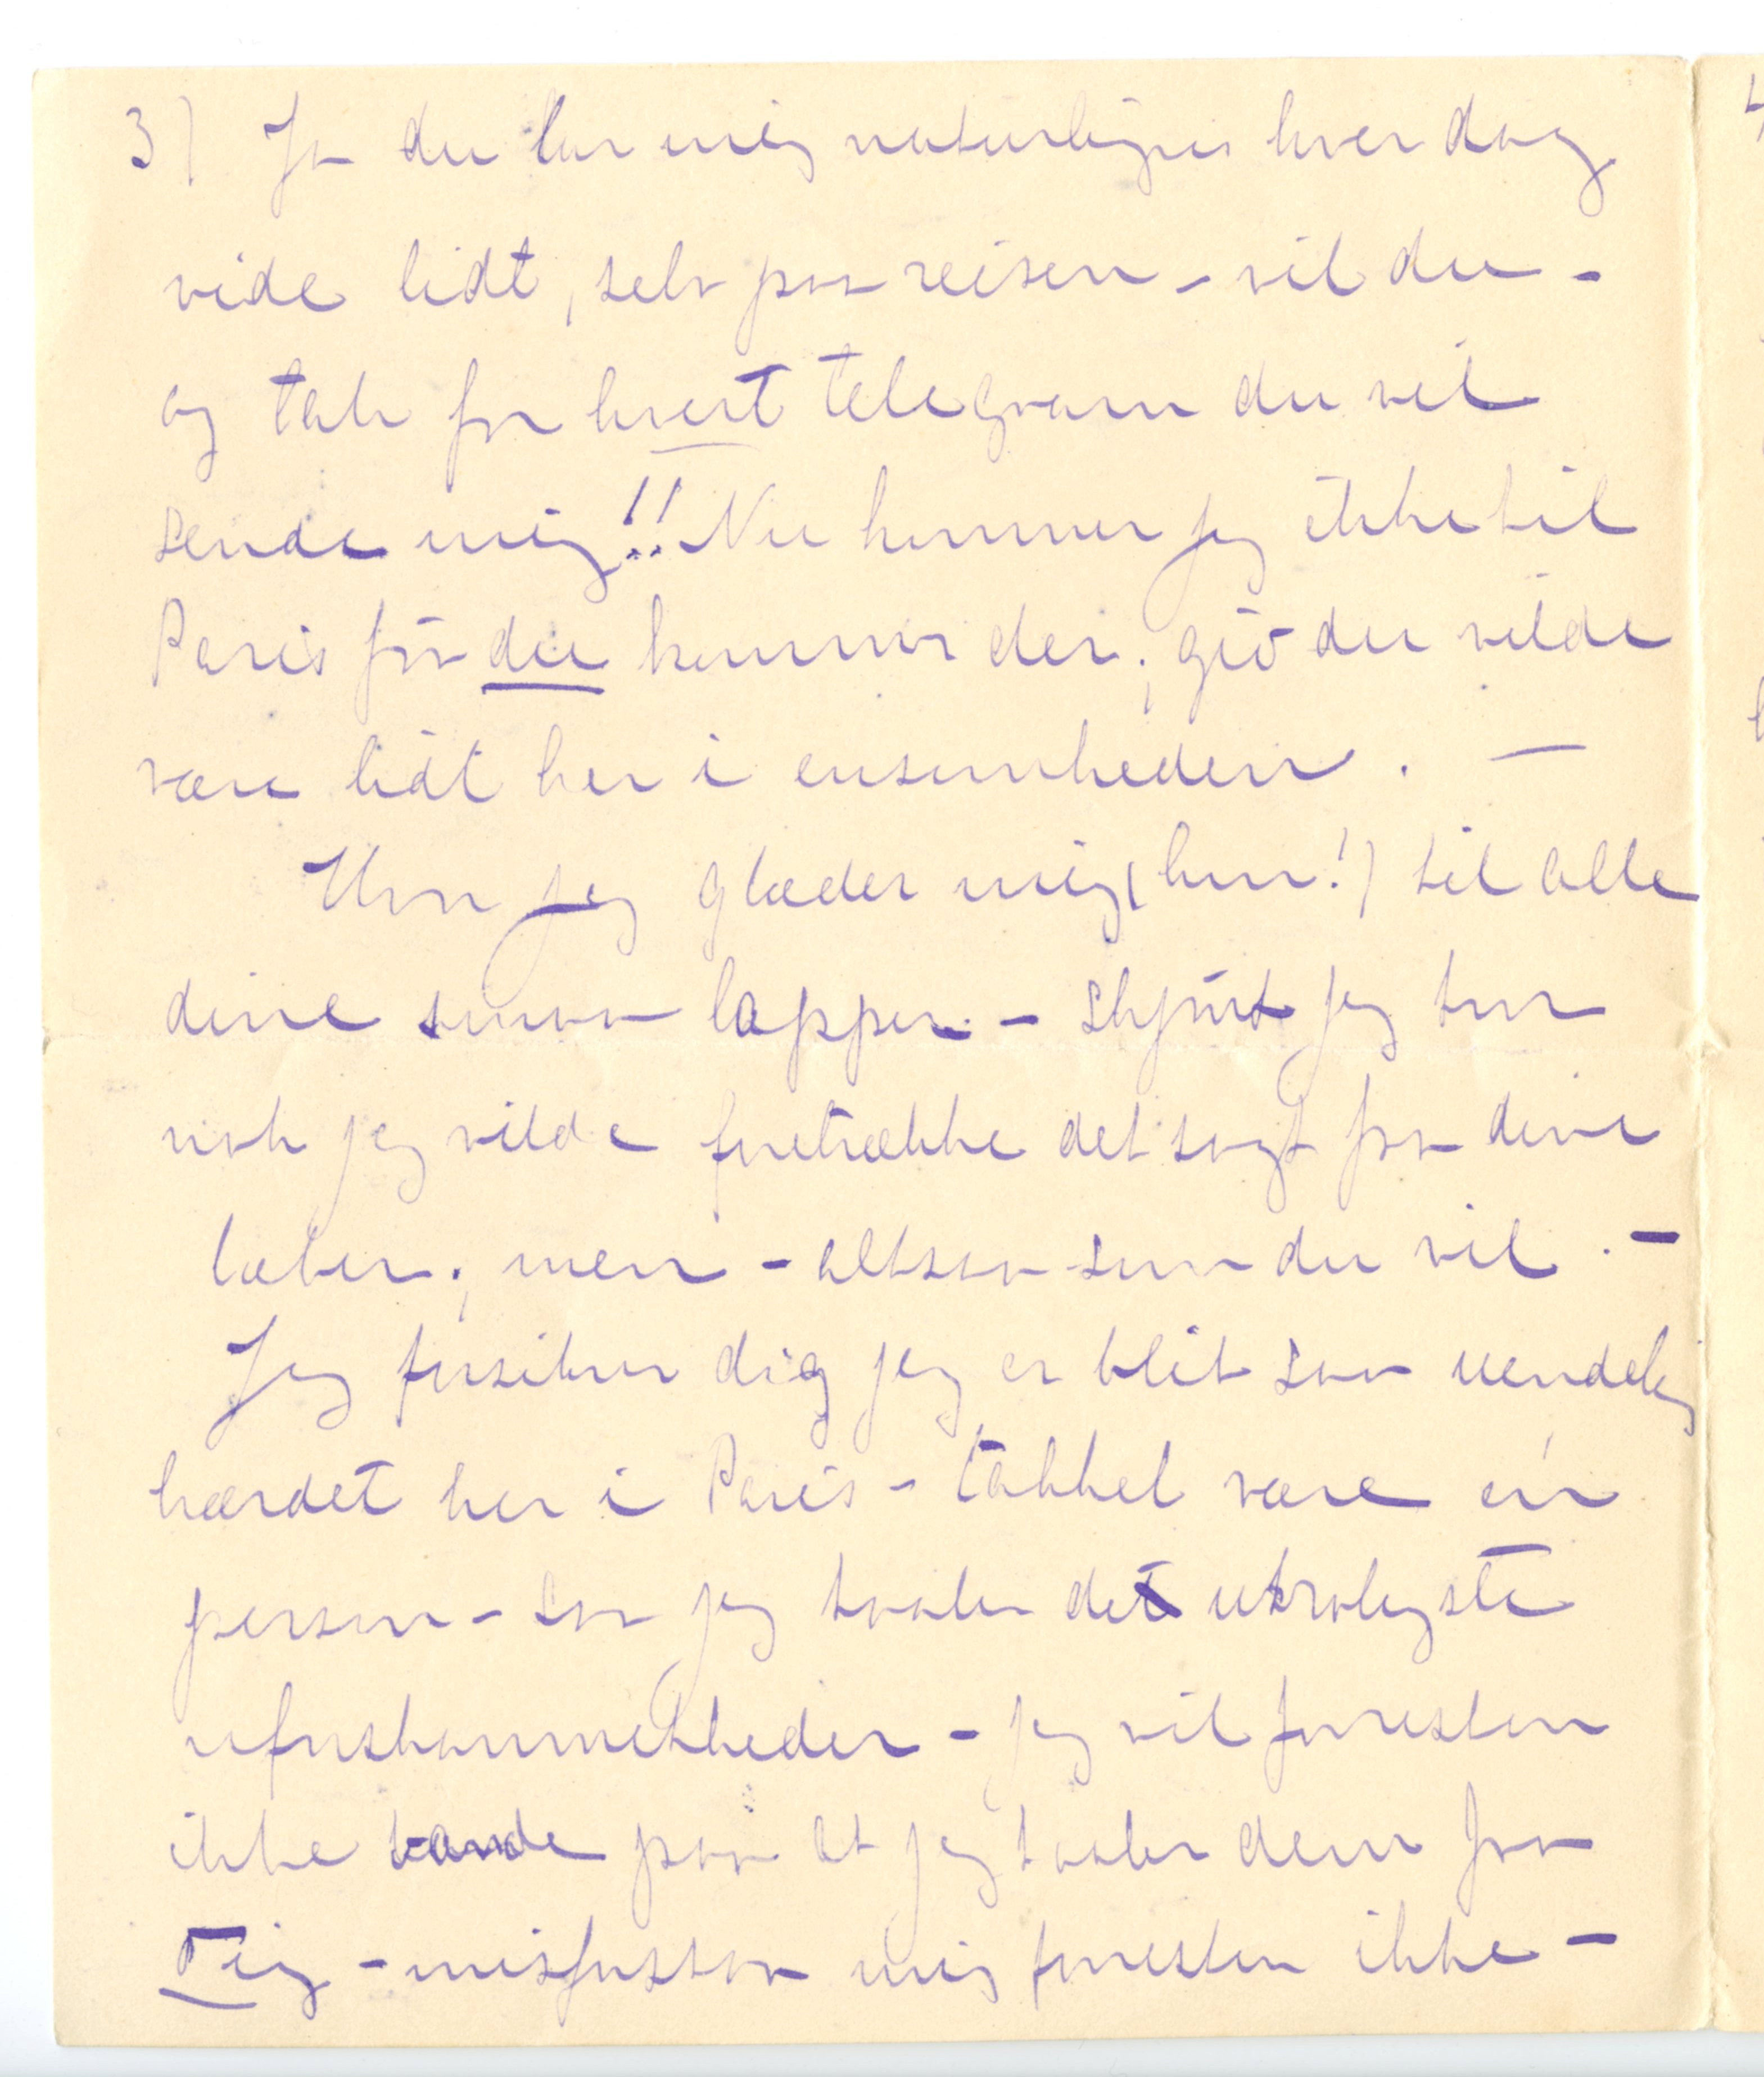 3) Ja du lar mig naturligvis hver dag
vide lidt, selv paa reisen – vil du –
og tak for hvert telegram du vil
sende mig!! Nu kommer jeg ikke til
Paris før du kommer der; gid du vilde
være lidt her i ensomheden. –
Hvor jeg glæder mig (hm!) til alle
dine smaa lapper – skjønt jeg tror
nok jeg vilde foretrække det sagt fra dine
læber; men – altsaa som du vil. –
Jeg forsikrer dig jeg er blit saa uendelig
hærdet her i Paris – takket være én
person – saa jeg taaler det utroligste
uforskammetheder – jeg vil forresten
ikke bande paa at jeg taaler dem fra
Dig – misforstaa mig forresten ikke –